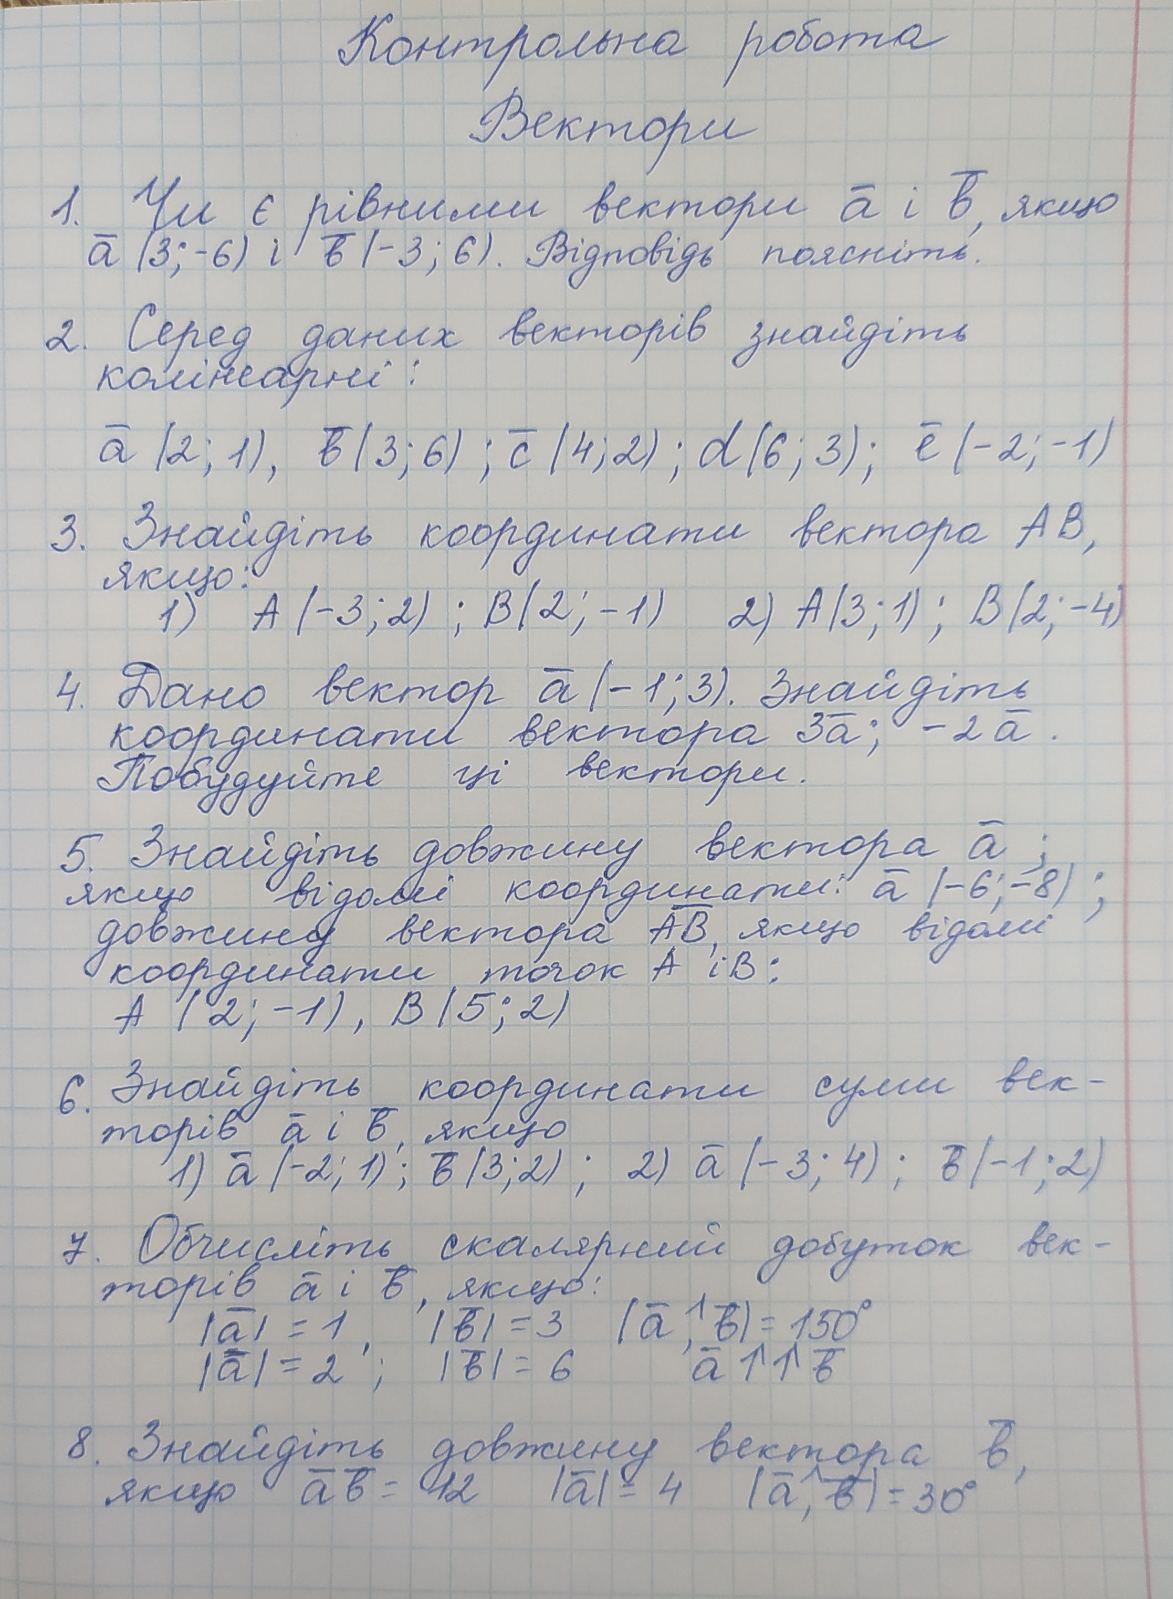 Контрольна робота
Вектори
1. Чи є рівними вектори a̅ і b̅, якщо
a̅ (3;-6) і b̅ (-3; 6). Відповідь поясніть.
2. Серед даних векторів знайдіть
колінеарні:
a̅ (2; 1), b̅ (3; 6); c̅ (4; 2); d (6; 3); e̅ (-2; -1)
3. Знайдіть координати вектора AB,
якщо:
1) A (-3; 2); B (2; -1) 2) A (3; 1); B (2; -4)
4. Дано вектор a̅ (-1; 3). Знайдіть
координати вектора 3a̅; -2a̅.
Побудуйте ці вектори.
5. Знайдіть довжину вектора a̅;
якщо відомі координати: a̅ (-6; -8);
довжину вектора A̅B̅, якщо відомі
координати точок A і B:
A (2; -1), B (5; 2)
6. Знайдіть координати суми век-
торів a̅ і b̅, якщо
1) a̅ (-2; 1); b̅ (3; 2); 2) a̅ (-3; 4); b̅ (-1; 2)
7. Обчисліть скалярний добуток век-
торів a̅ і b̅, якщо:
|a̅| = 1, |b̅| = 3 (a̅,^b̅) = 150°
|a̅| = 2; |b̅| = 6 a̅ ↑↑ b̅
8. Знайдіть довжину вектора b̅,
якщо a̅b̅ = 12 |a̅| = 4 (a̅,^b̅) = 30°